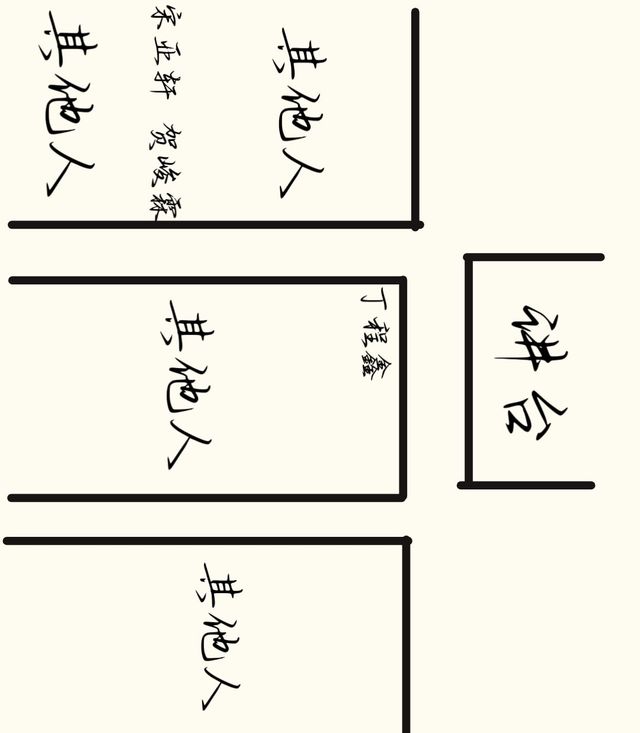 其他人
宋亚轩 贺峻霖
其他人
丁程鑫
其他人
讲台
其他人